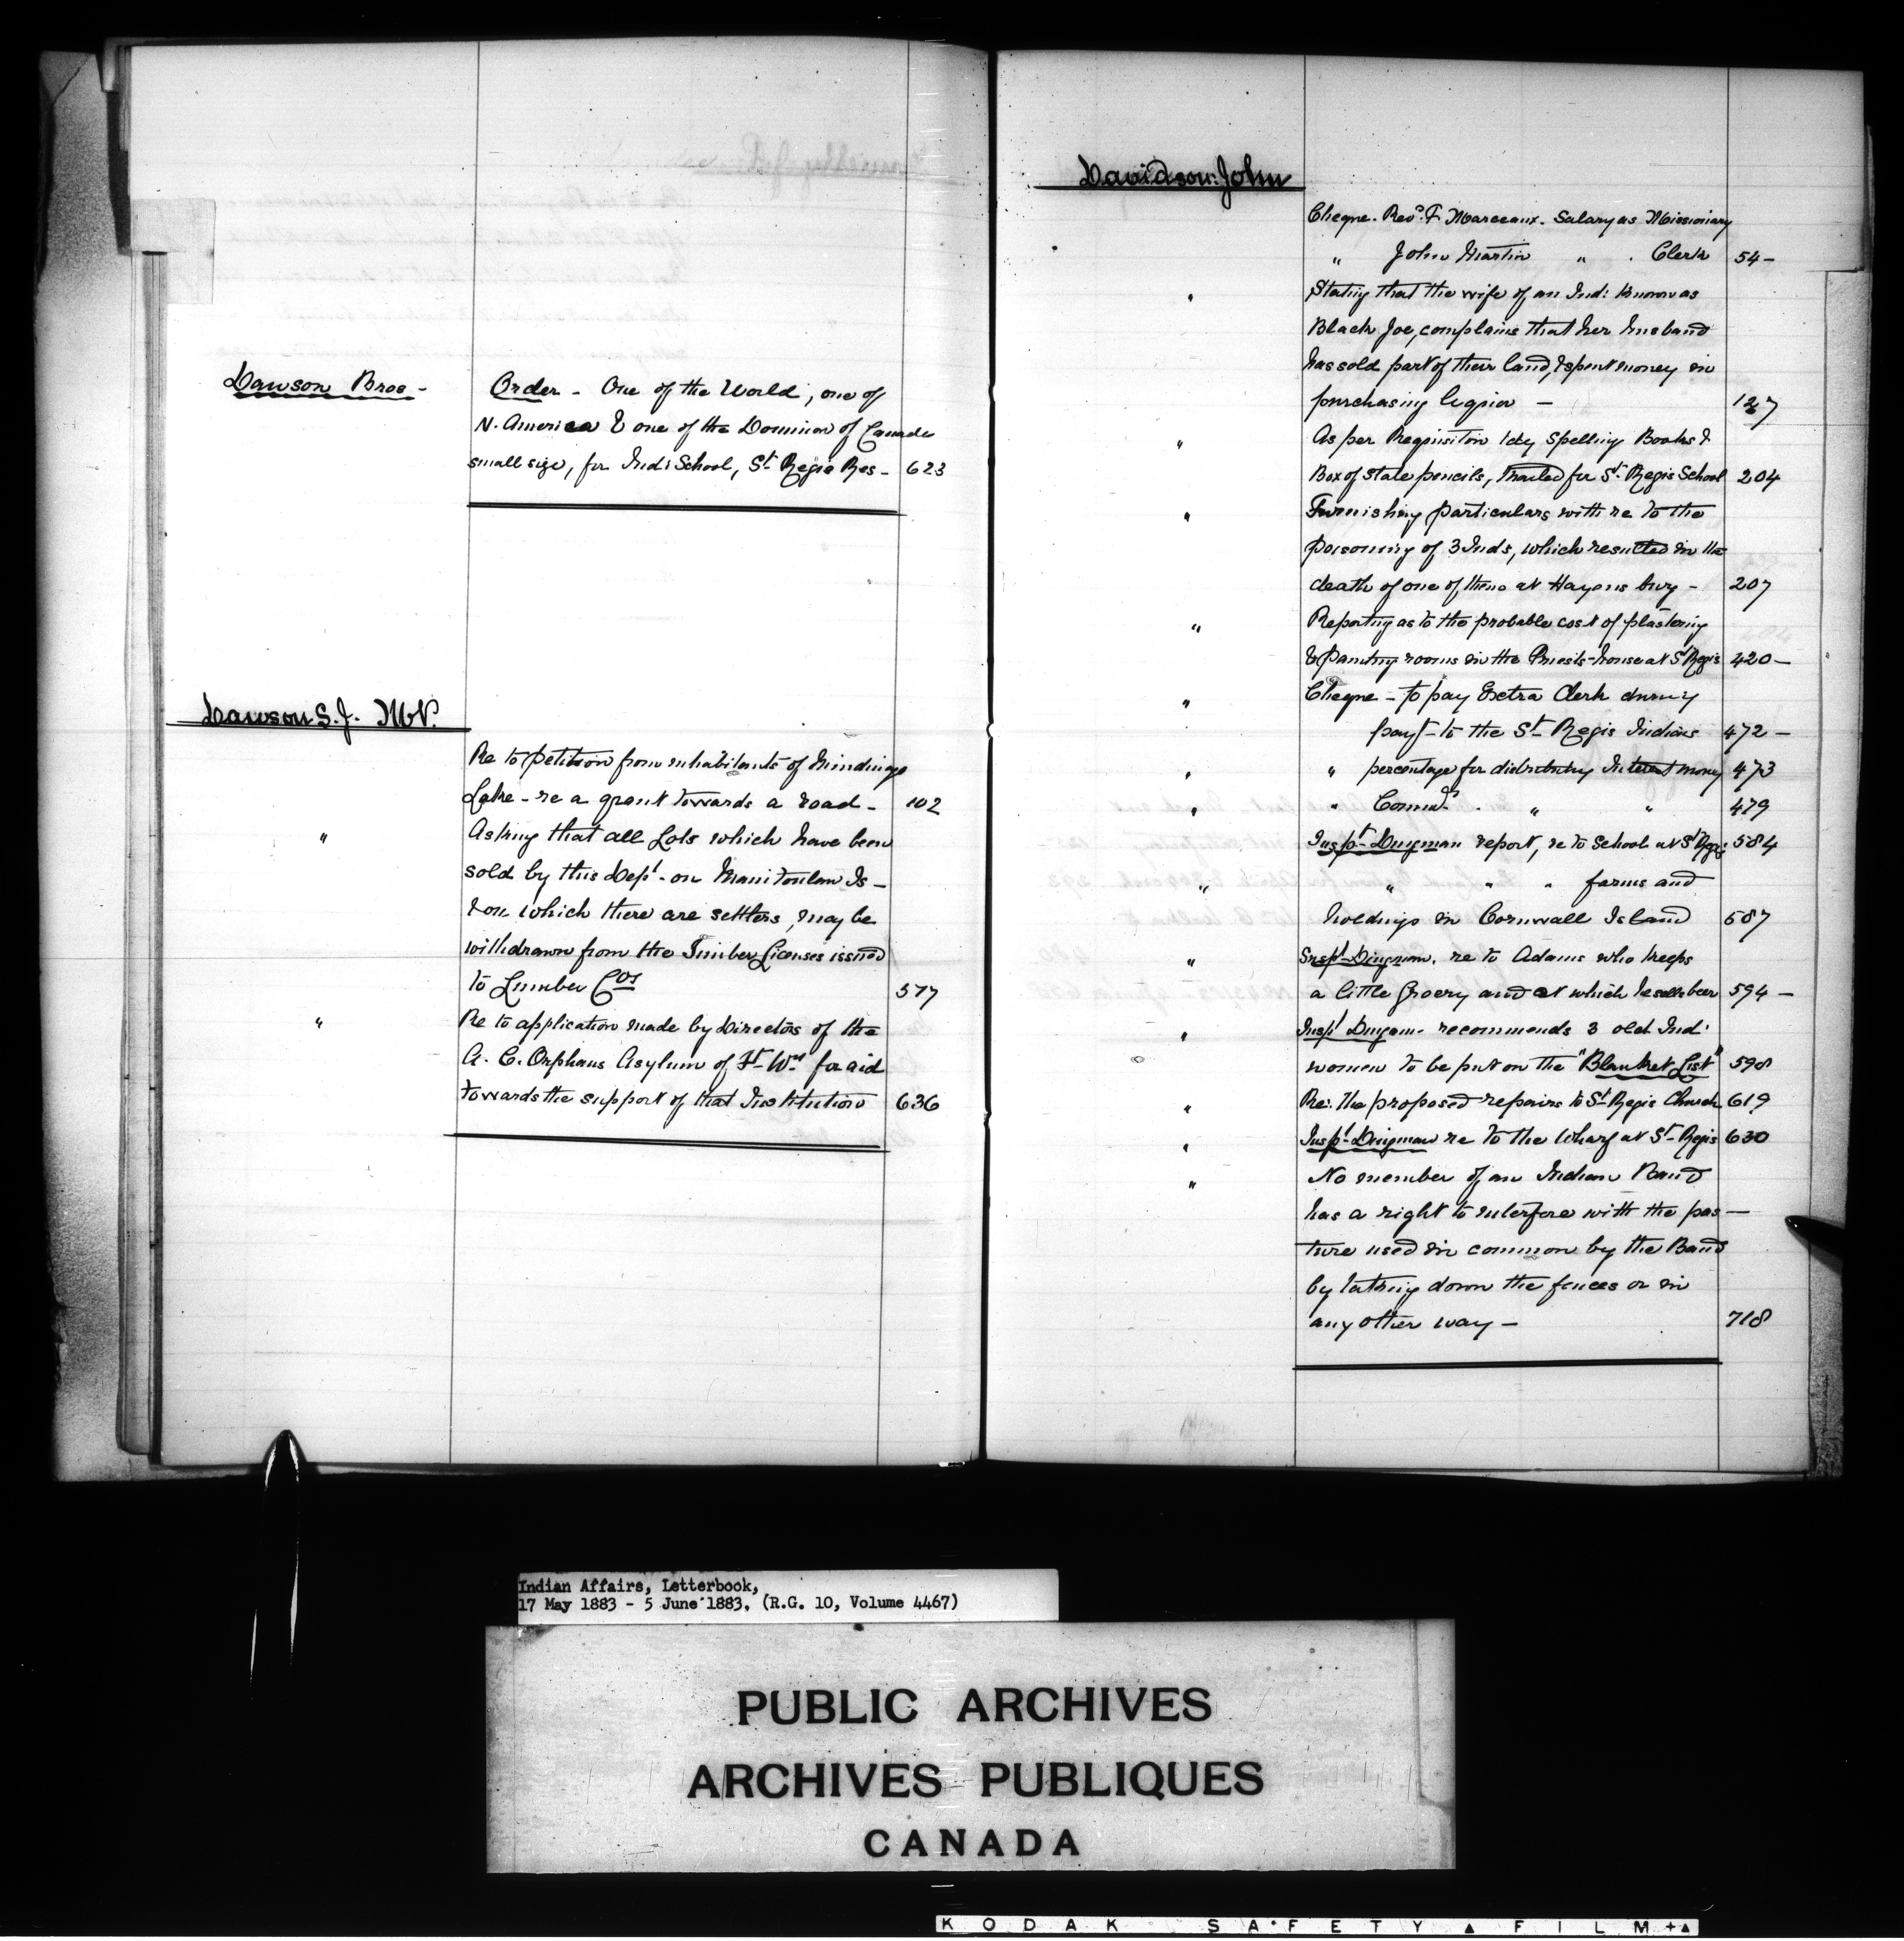 Dawson Bros -
Order - One of the World, one of
N. America & one of the Dominion of Canada
small size, for Ind: School, St Regis Res - 623
Dawson S. J. M.P.
Re to petition from inhabitants of Mindimge
Lake - re a grant towards a road - 102
" Asking that all Lots which have been
sold by this Dept - on Manitoulin Is -
& on which there are settlers, may be
withdrawn from the Timber Licenses issued
to Lumber Cos 577
" Re to application made by Directors of the
R. C. Orphans Asylum of Ft Wm for aid
towards the support of that Institution 636
Davidson John
Cheque - Revd F. Marceaux - Salary as Missionary
" John Martin " Clerk 54 -
" Stating that the wife of an Ind: known as
Black Joe, complains that her husband
has sold part of their land, & spent money in
purchasing liquor - 127
" As per Requisition 1 dz Spelling Books &
Box of slate pencils, mailed for St Regis School 204
" Furnishing particulars with re to the
poisoning of 3 Inds, which resulted in the
death of one of them at Hogansburg - 207
" Reporting as to the probable cost of plastering
& painting rooms in the Priests-house at St Regis 420 -
" Cheque - to pay Extra Clerk during
payt - to the St Regis Indians 472 -
" " percentage for distributing Interest money 473
" " Commn " " 479
Inspt Dingman report, re to School at St Regis 584
" " " " farms and
holdings in Cornwall Island 587
" Inspt Dingman. re to Adams who keeps
a little Grocery and at which he sells beer 594 -
" Inspt Dingman - recommends 3 old Ind:
women to be put on the "Blanket List" 598
" Re: the proposed repairs to St Regis Church 619
" Inspt Dingman re to the Wharf at St Regis 630
" No member of an Indian Band
has a right to interfere with the pas -
ture used in common by the Band
by taking down the fences or in
any other way - 718
Indian Affairs, Letterbook,
17 May 1883 - 5 June 1883. (R.G. 10, Volume 4467)
PUBLIC ARCHIVES
ARCHIVES PUBLIQUES
CANADA
KODAK SAFETY ▲ FILM +▲